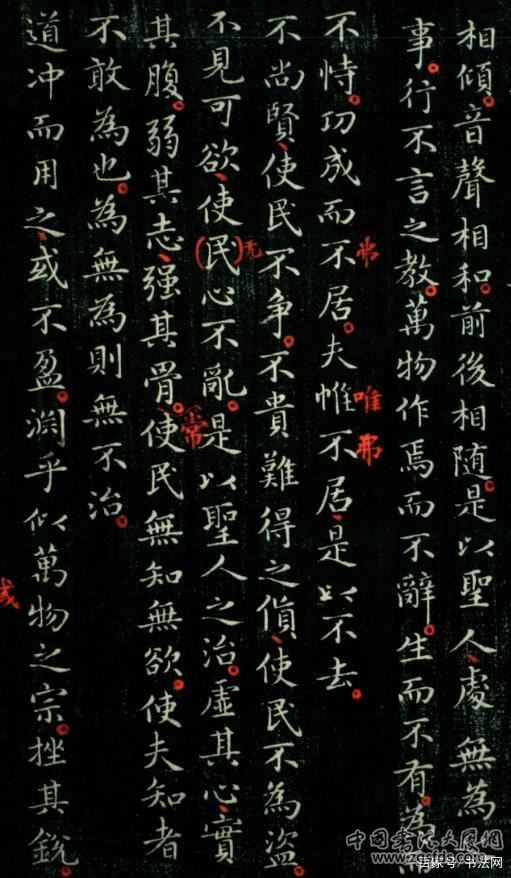 相傾。音聲相和。前後相随。是以聖人、處無為
事。行不言之教。萬物作焉而不辭。生而不有。為而
不恃。功成而不居。夫惟不居、是以不去。
弗
唯弗
不尚賢、使民不争。不貴難得之貨、使民不為盗。
不見可欲、使(民)心不亂。是以聖人之治。虛其心、實
无
常
其腹。弱其志、强其骨。使民無知無欲。使夫知者
不敢為也。為無為則無不治。
道冲而用之、或不盈。渊乎似萬物之宗。挫其銳。
或
中国书法大厦网
百家号/书法网